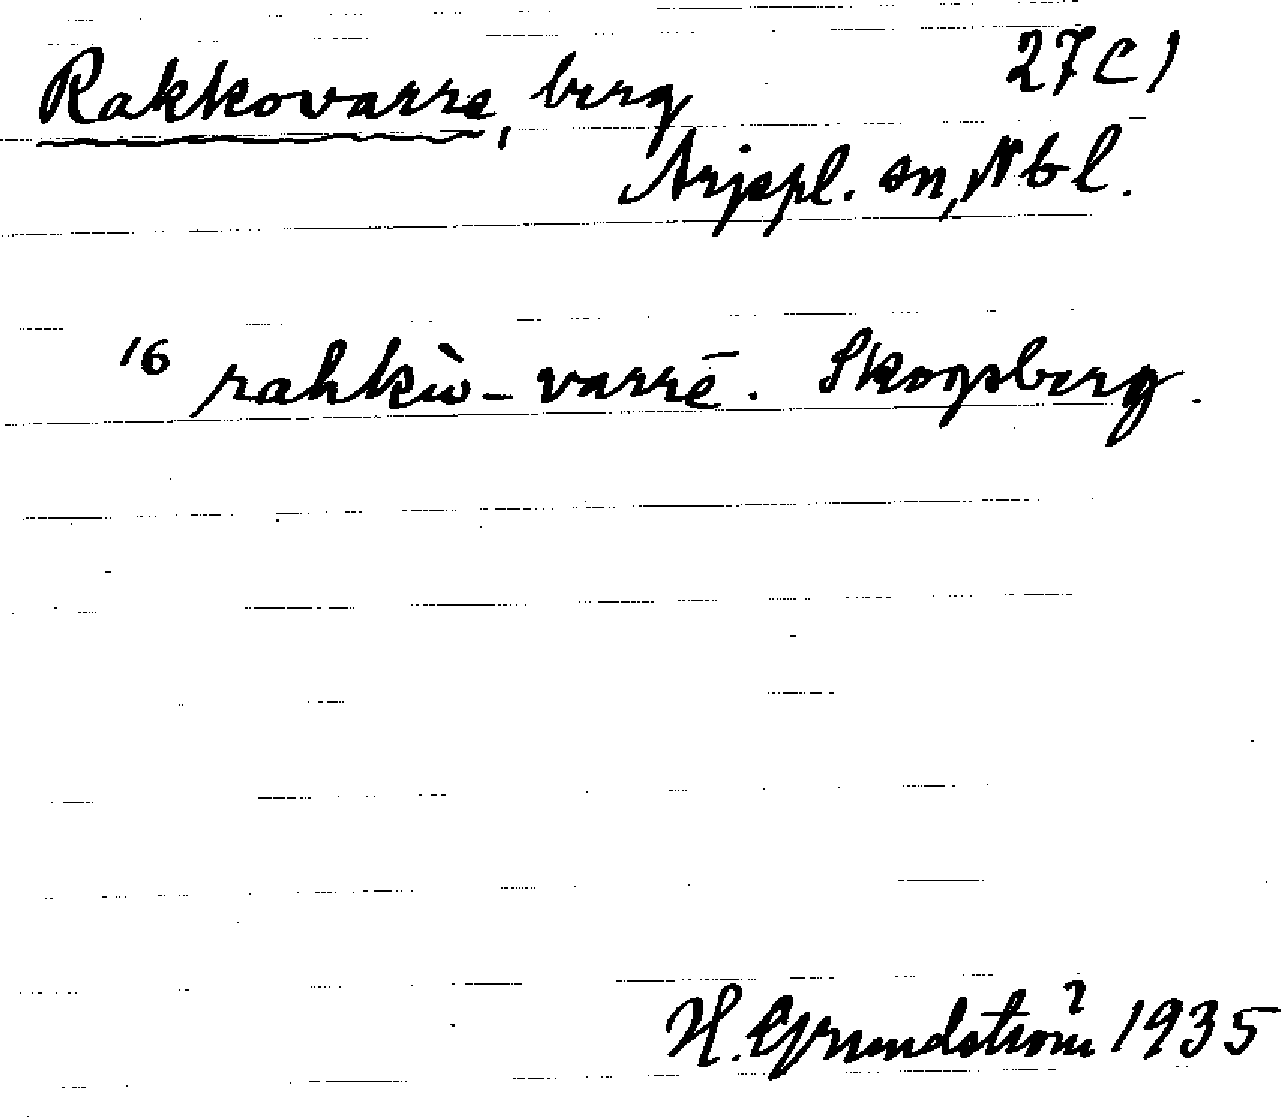 Rakkovarre, berg 27 C 1
Arjepl. sn, Nbl.
16 rahkù - varrē. Skogsberg.
H. Grundström 1935